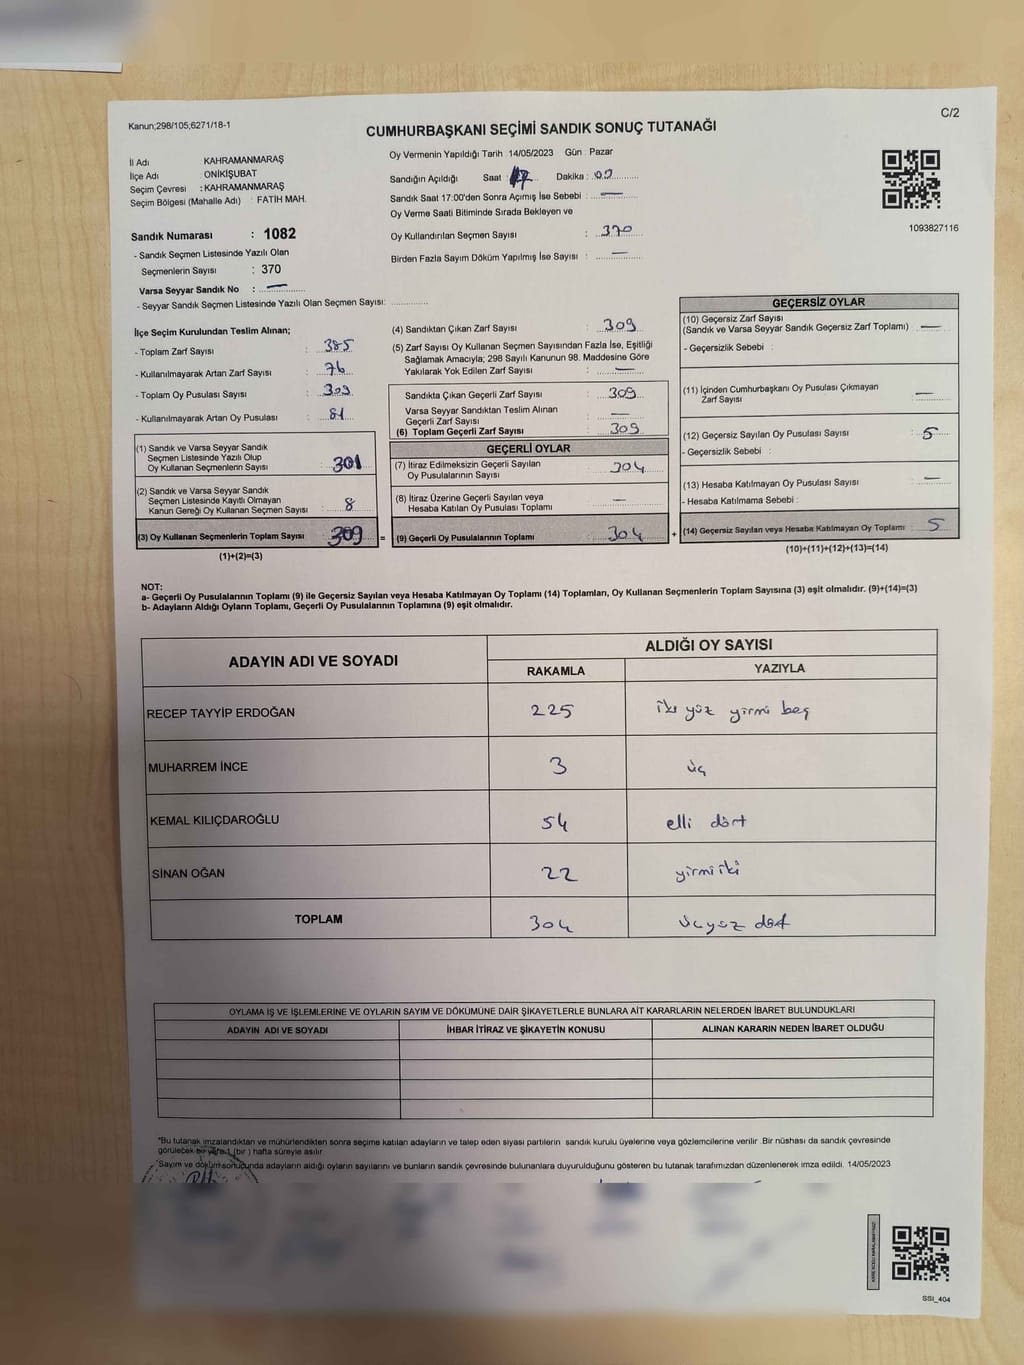 Kanun;298/105;6271/18-1
C/2
CUMHURBAŞKANI SEÇİMİ SANDIK SONUÇ TUTANAĞI
İl Adı KAHRAMANMARAŞ
İlçe Adı ONİKİŞUBAT
Seçim Çevresi : KAHRAMANMARAŞ
Seçim Bölgesi (Mahalle Adı) : FATİH MAH.
Sandık Numarası : 1082
- Sandık Seçmen Listesinde Yazılı Olan
Seçmenlerin Sayısı : 370
Varsa Seyyar Sandık No : —
- Seyyar Sandık Seçmen Listesinde Yazılı Olan Seçmen Sayısı:
Oy Vermenin Yapıldığı Tarih : 14/05/2023 Gün : Pazar
Sandığın Açıldığı Saat : 17 Dakika : 00
Sandık Saat 17:00'den Sonra Açımış İse Sebebi : —
Oy Verme Saati Bitiminde Sırada Bekleyen ve
Oy Kullandırılan Seçmen Sayısı : 370
Birden Fazla Sayım Döküm Yapılmış İse Sayısı : —
1093827116
İlçe Seçim Kurulundan Teslim Alınan;
- Toplam Zarf Sayısı : 385
- Kullanılmayarak Artan Zarf Sayısı : 76
- Toplam Oy Pusulası Sayısı : 309
- Kullanılmayarak Artan Oy Pusulası : 81
(1) Sandık ve Varsa Seyyar Sandık
Seçmen Listesinde Yazılı Olup
Oy Kullanan Seçmenlerin Sayısı : 301
(2) Sandık ve Varsa Seyyar Sandık
Seçmen Listesinde Kayıtlı Olmayan
Kanun Gereği Oy Kullanan Seçmen Sayısı : 8
(3) Oy Kullanan Seçmenlerin Toplam Sayısı 309 =
(1)+(2)=(3)
(4) Sandıktan Çıkan Zarf Sayısı : 309
(5) Zarf Sayısı Oy Kullanan Seçmen Sayısından Fazla İse, Eşitliği
Sağlamak Amacıyla; 298 Sayılı Kanunun 98. Maddesine Göre
Yakılarak Yok Edilen Zarf Sayısı : —
Sandıkta Çıkan Geçerli Zarf Sayısı : 309
Varsa Seyyar Sandıktan Teslim Alınan
Geçerli Zarf Sayısı : —
(6) Toplam Geçerli Zarf Sayısı : 309
GEÇERLİ OYLAR
(7) İtiraz Edilmeksizin Geçerli Sayılan
Oy Pusulalarının Sayısı : 304
(8) İtiraz Üzerine Geçerli Sayılan veya
Hesaba Katılan Oy Pusulası Toplamı : —
(9) Geçerli Oy Pusulalarının Toplamı : 304 +
GEÇERSİZ OYLAR
(10) Geçersiz Zarf Sayısı
(Sandık ve Varsa Seyyar Sandık Geçersiz Zarf Toplamı) : —
- Geçersizlik Sebebi :
(11) İçinden Cumhurbaşkanı Oy Pusulası Çıkmayan
Zarf Sayısı : —
(12) Geçersiz Sayılan Oy Pusulası Sayısı : 5
- Geçersizlik Sebebi :
(13) Hesaba Katılmayan Oy Pusulası Sayısı : —
- Hesaba Katılmama Sebebi :
(14) Geçersiz Sayılan veya Hesaba Katılmayan Oy Toplamı : 5
(10)+(11)+(12)+(13)=(14)
NOT:
a- Geçerli Oy Pusulalarının Toplamı (9) ile Geçersiz Sayılan veya Hesaba Katılmayan Oy Toplamı (14) Toplamları, Oy Kullanan Seçmenlerin Toplam Sayısına (3) eşit olmalıdır. (9)+(14)=(3)
b- Adayların Aldığı Oyların Toplamı, Geçerli Oy Pusulalarının Toplamına (9) eşit olmalıdır.
ADAYIN ADI VE SOYADI
ALDIĞI OY SAYISI
RAKAMLA YAZIYLA
RECEP TAYYİP ERDOĞAN 225 iki yüz yirmi beş
MUHARREM İNCE 3 üç
KEMAL KILIÇDAROĞLU 54 elli dört
SİNAN OĞAN 22 yirmi iki
TOPLAM 304 üçyüz dört
OYLAMA İŞ VE İŞLEMLERİNE VE OYLARIN SAYIM VE DÖKÜMÜNE DAİR ŞİKAYETLERLE BUNLARA AİT KARARLARIN NELERDEN İBARET BULUNDUKLARI
ADAYIN ADI VE SOYADI İHBAR İTİRAZ VE ŞİKAYETİN KONUSU ALINAN KARARIN NEDEN İBARET OLDUĞU
*Bu tutanak imzalandıktan ve mühürlendikten sonra seçime katılan adayların ve talep eden siyasi partilerin sandık kurulu üyelerine veya gözlemcilerine verilir .Bir nüshası da sandık çevresinde
görülecek bir yere 1 (bir ) hafta süreyle asılır.
*Sayım ve döküm sonucunda adayların aldığı oyların sayılarını ve bunların sandık çevresinde bulunanlara duyurulduğunu gösteren bu tutanak tarafımızdan düzenlenerek imza edildi. 14/05/2023
SSI_404